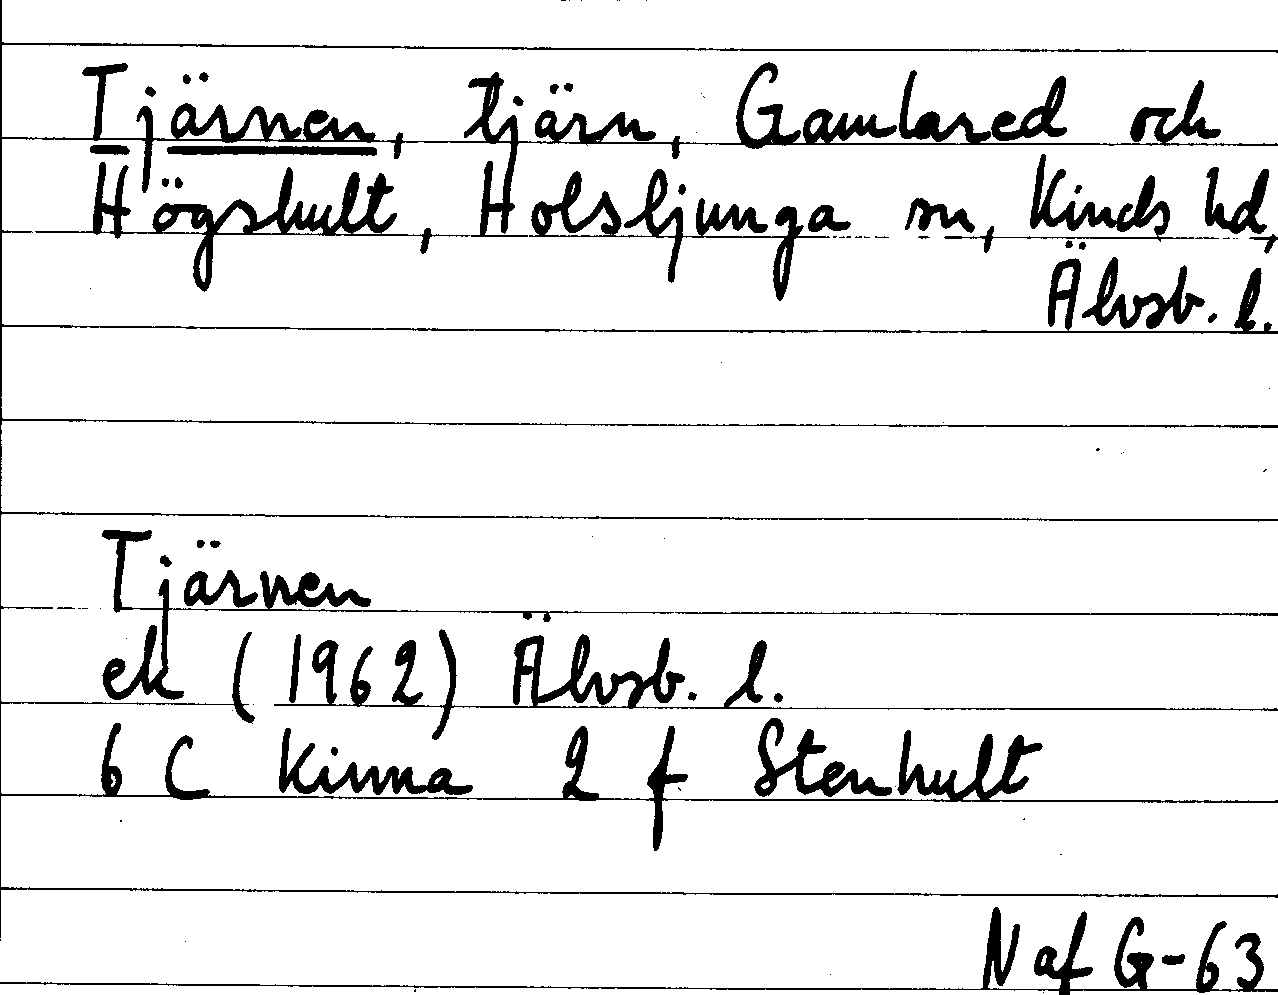 Tjärnen, tjärn, Gamlared och
Högshult, Holsljunga sn, Kinds hd,
Älvsb. l.
Tjärnen
ek (1962) Älvsb. l.
6 C Kinna 2 f Stenhult
N af G-63